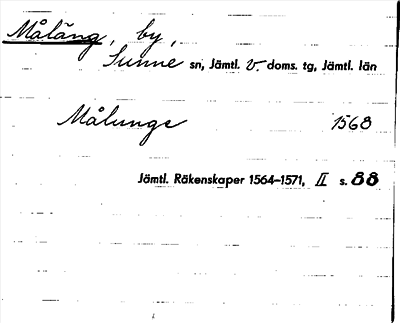 Måläng, by,
Sunne sn, Jämtl. v. doms. tg, Jämtl. län
Målunge 1568
Jämtl. Räkenskaper 1564–1571, II s. 88